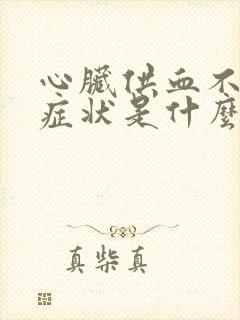 心臟供血不
症状是什麼
真柴真